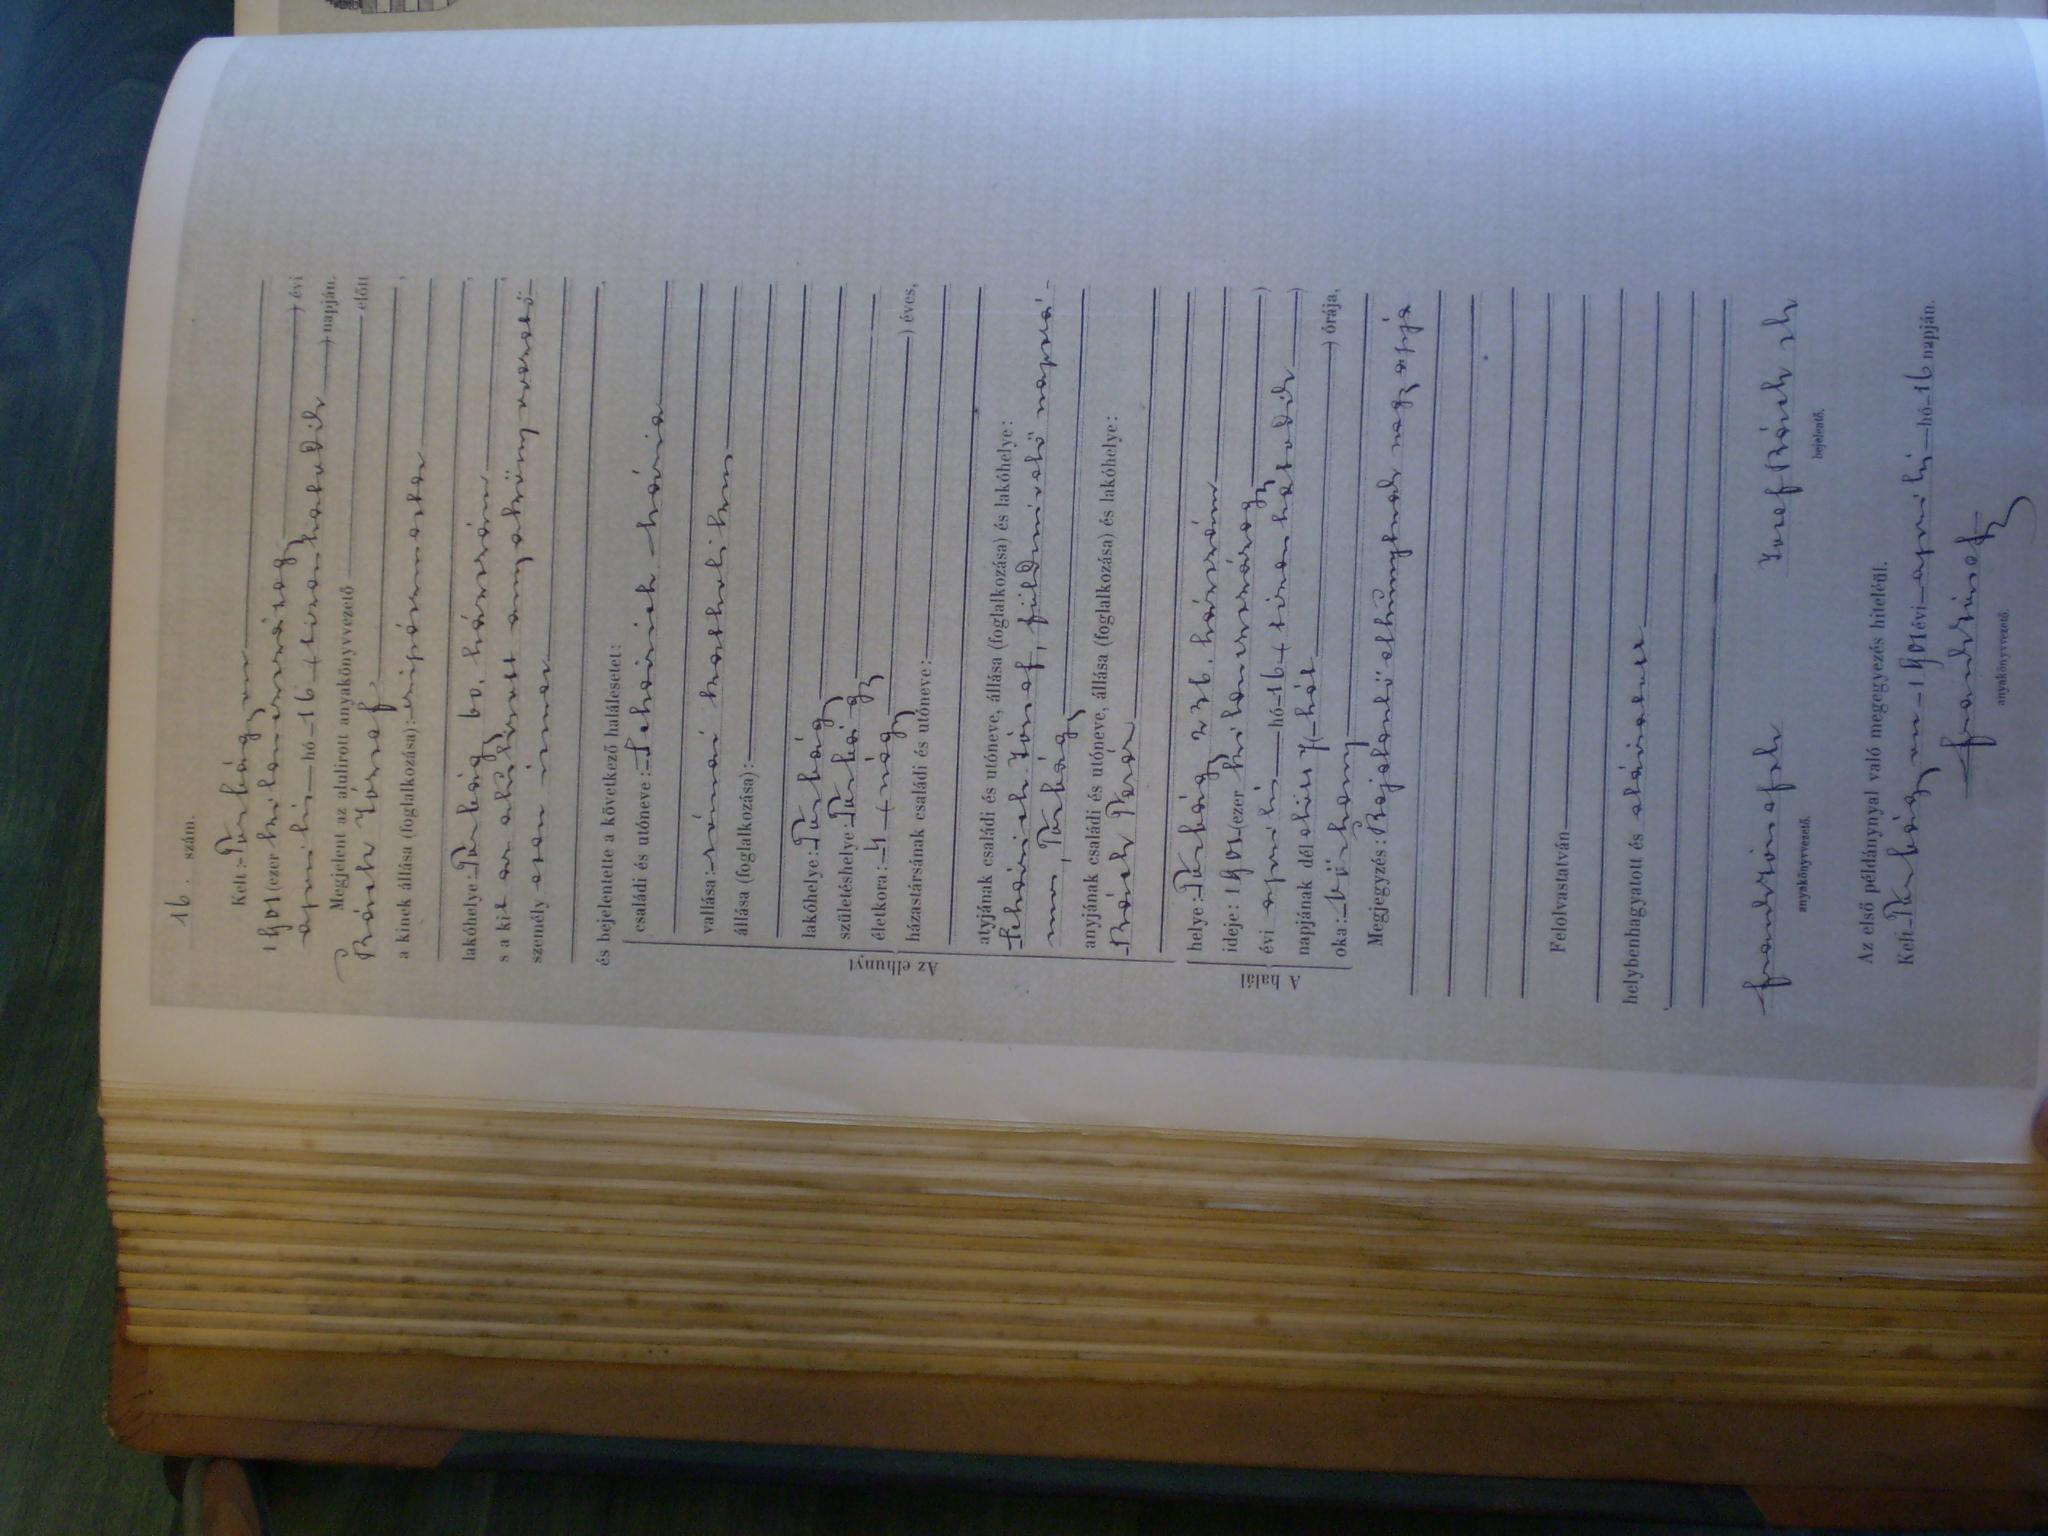 16. szám.
Kelt: Törbágyon
1901 (ezer kilencszázegy) évi
április hó 16 (tizenhatodik) napján.
Megjelent az alulirott anyakönyvvezető előtt
József
a kinek állása (foglalkozása):
lakóhelye: Törbágy 60. házszám,
s a kit az alulirott anyakönyvvezető
személyesen ismer
és bejelentette a következő halálesetet:
Az elhunyt
családi és utóneve: Mária
vallása: római katholikus
állása (foglalkozása):
lakóhelye: Törbágy
születéshelye: Törbágy
életkora: 4 (négy) éves,
házastársának családi és utóneve:
atyjának családi és utóneve, állása (foglalkozása) és lakóhelye:
József, földmivelő napszá-
mos, Törbágy
anyjának családi és utóneve, állása (foglalkozása) és lakóhelye:
A halál
helye: Törbágy 236. házszám
ideje: 1901 (ezer kilencszázegy)
évi április hó 16 (tizenhatodik)
napjának dél előtt 7 (hét) órája,
oka:
Megjegyzés: Bejelentő elhunytnak nagyapja
Felolvastatván
helybenhagyatott és aláiratott
anyakönyvvezető.
Josef
bejelentő.
Az első példánynyal való megegyezés hiteléül.
Kelt Törbágyon 1901 évi április hó 16 napján.
anyakönyvvezető.